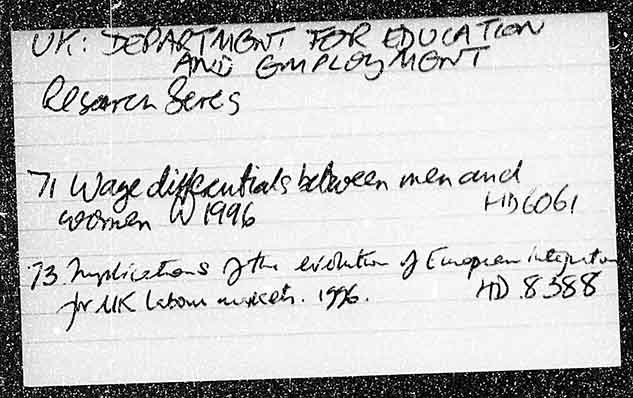 UK: DEPARTMENT FOR EDUCATION
AND EMPLOYMENT
Research Series
71 Wage differentials between men and
women 1996 HD6061
73. Implications of the evolution of European integration
for UK labour markets. 1996. HD 8388